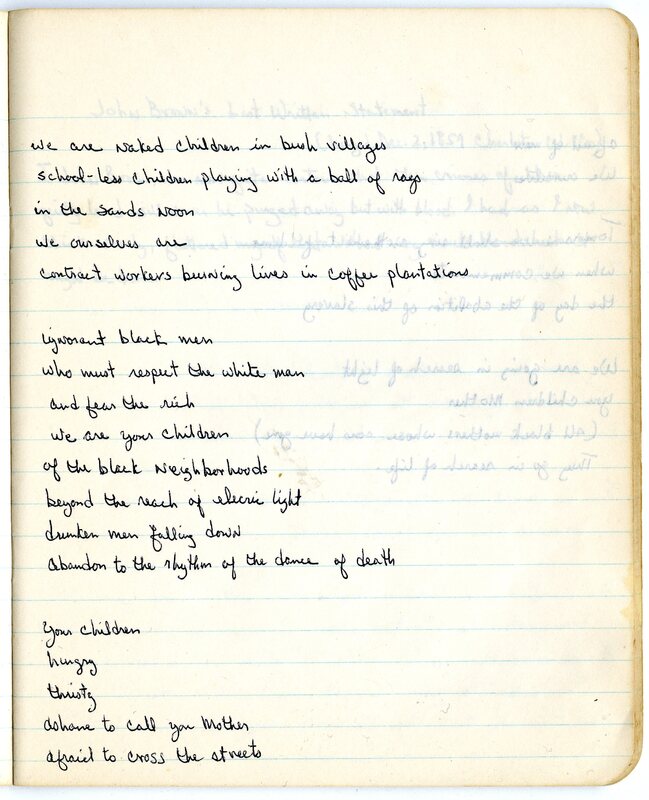 we are naked children in bush villages
school-less children playing with a ball of rags
in the sands noon
we ourselves are
contract workers burning lives in coffee plantations
ignorant black men
who must respect the white man
and fear the rich
we are your children
of the black neighborhoods
beyond the reach of electric light
drunken men falling down
abandon to the rhythm of the dance of death
Your children
hungry
thristy
ashame to call you Mother
afraid to cross the streets